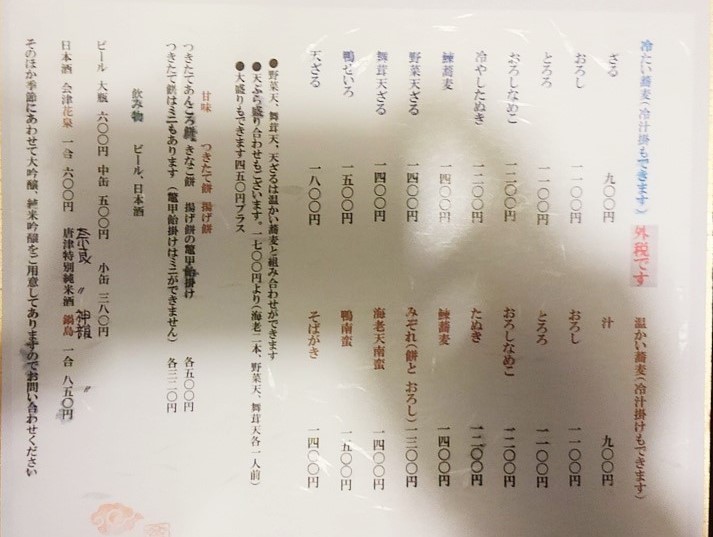 冷たい蕎麦(冷汁掛もできます) 外税です 温かい蕎麦(冷汁掛けもできます)
ざる 九〇〇円 汁 九〇〇円
おろし 一一〇〇円 おろし 一一〇〇円
とろろ 一一〇〇円 とろろ 一一〇〇円
おろしなめこ 一二〇〇円 おろしなめこ 一二〇〇円
冷やしたぬき 一二〇〇円 たぬき 一二〇〇円
鰊蕎麦 一四〇〇円 鰊蕎麦 一四〇〇円
野菜天ざる 一四〇〇円 みぞれ(餅と おろし) 一三〇〇円
舞茸天ざる 一四〇〇円 海老天南蛮 一四〇〇円
鴨せいろ 一五〇〇円 鴨南蛮 一五〇〇円
天ざる 一八〇〇円 そばがき 一四〇〇円
●野菜天、舞茸天、天ざるは温かい蕎麦と組み合わせができます
●天ぷら盛り合わせもございます。一七〇〇円より(海老二本、野菜天、舞茸天各一人前)
●大盛りもできます四五〇円プラス
甘味 つきたて餅 揚げ餅
つきたてあんころ餅 きなこ餅 揚げ餅の鼈甲飴掛け 各五〇〇円
つきたて餅はミニもあります (鼈甲飴掛けはミニができません) 各三三〇円
飲み物 ビール、日本酒
ビール 大瓶 六〇〇円 中缶 五〇〇円 小缶 三八〇円
奈良 〃 神韻 〃
日本酒 会津花泉 一合 六〇〇円 唐津特別純米酒 鍋島 一合 八五〇円
そのほか季節にあわせて大吟醸、純米吟醸をご用意してありますのでお問い合わせください